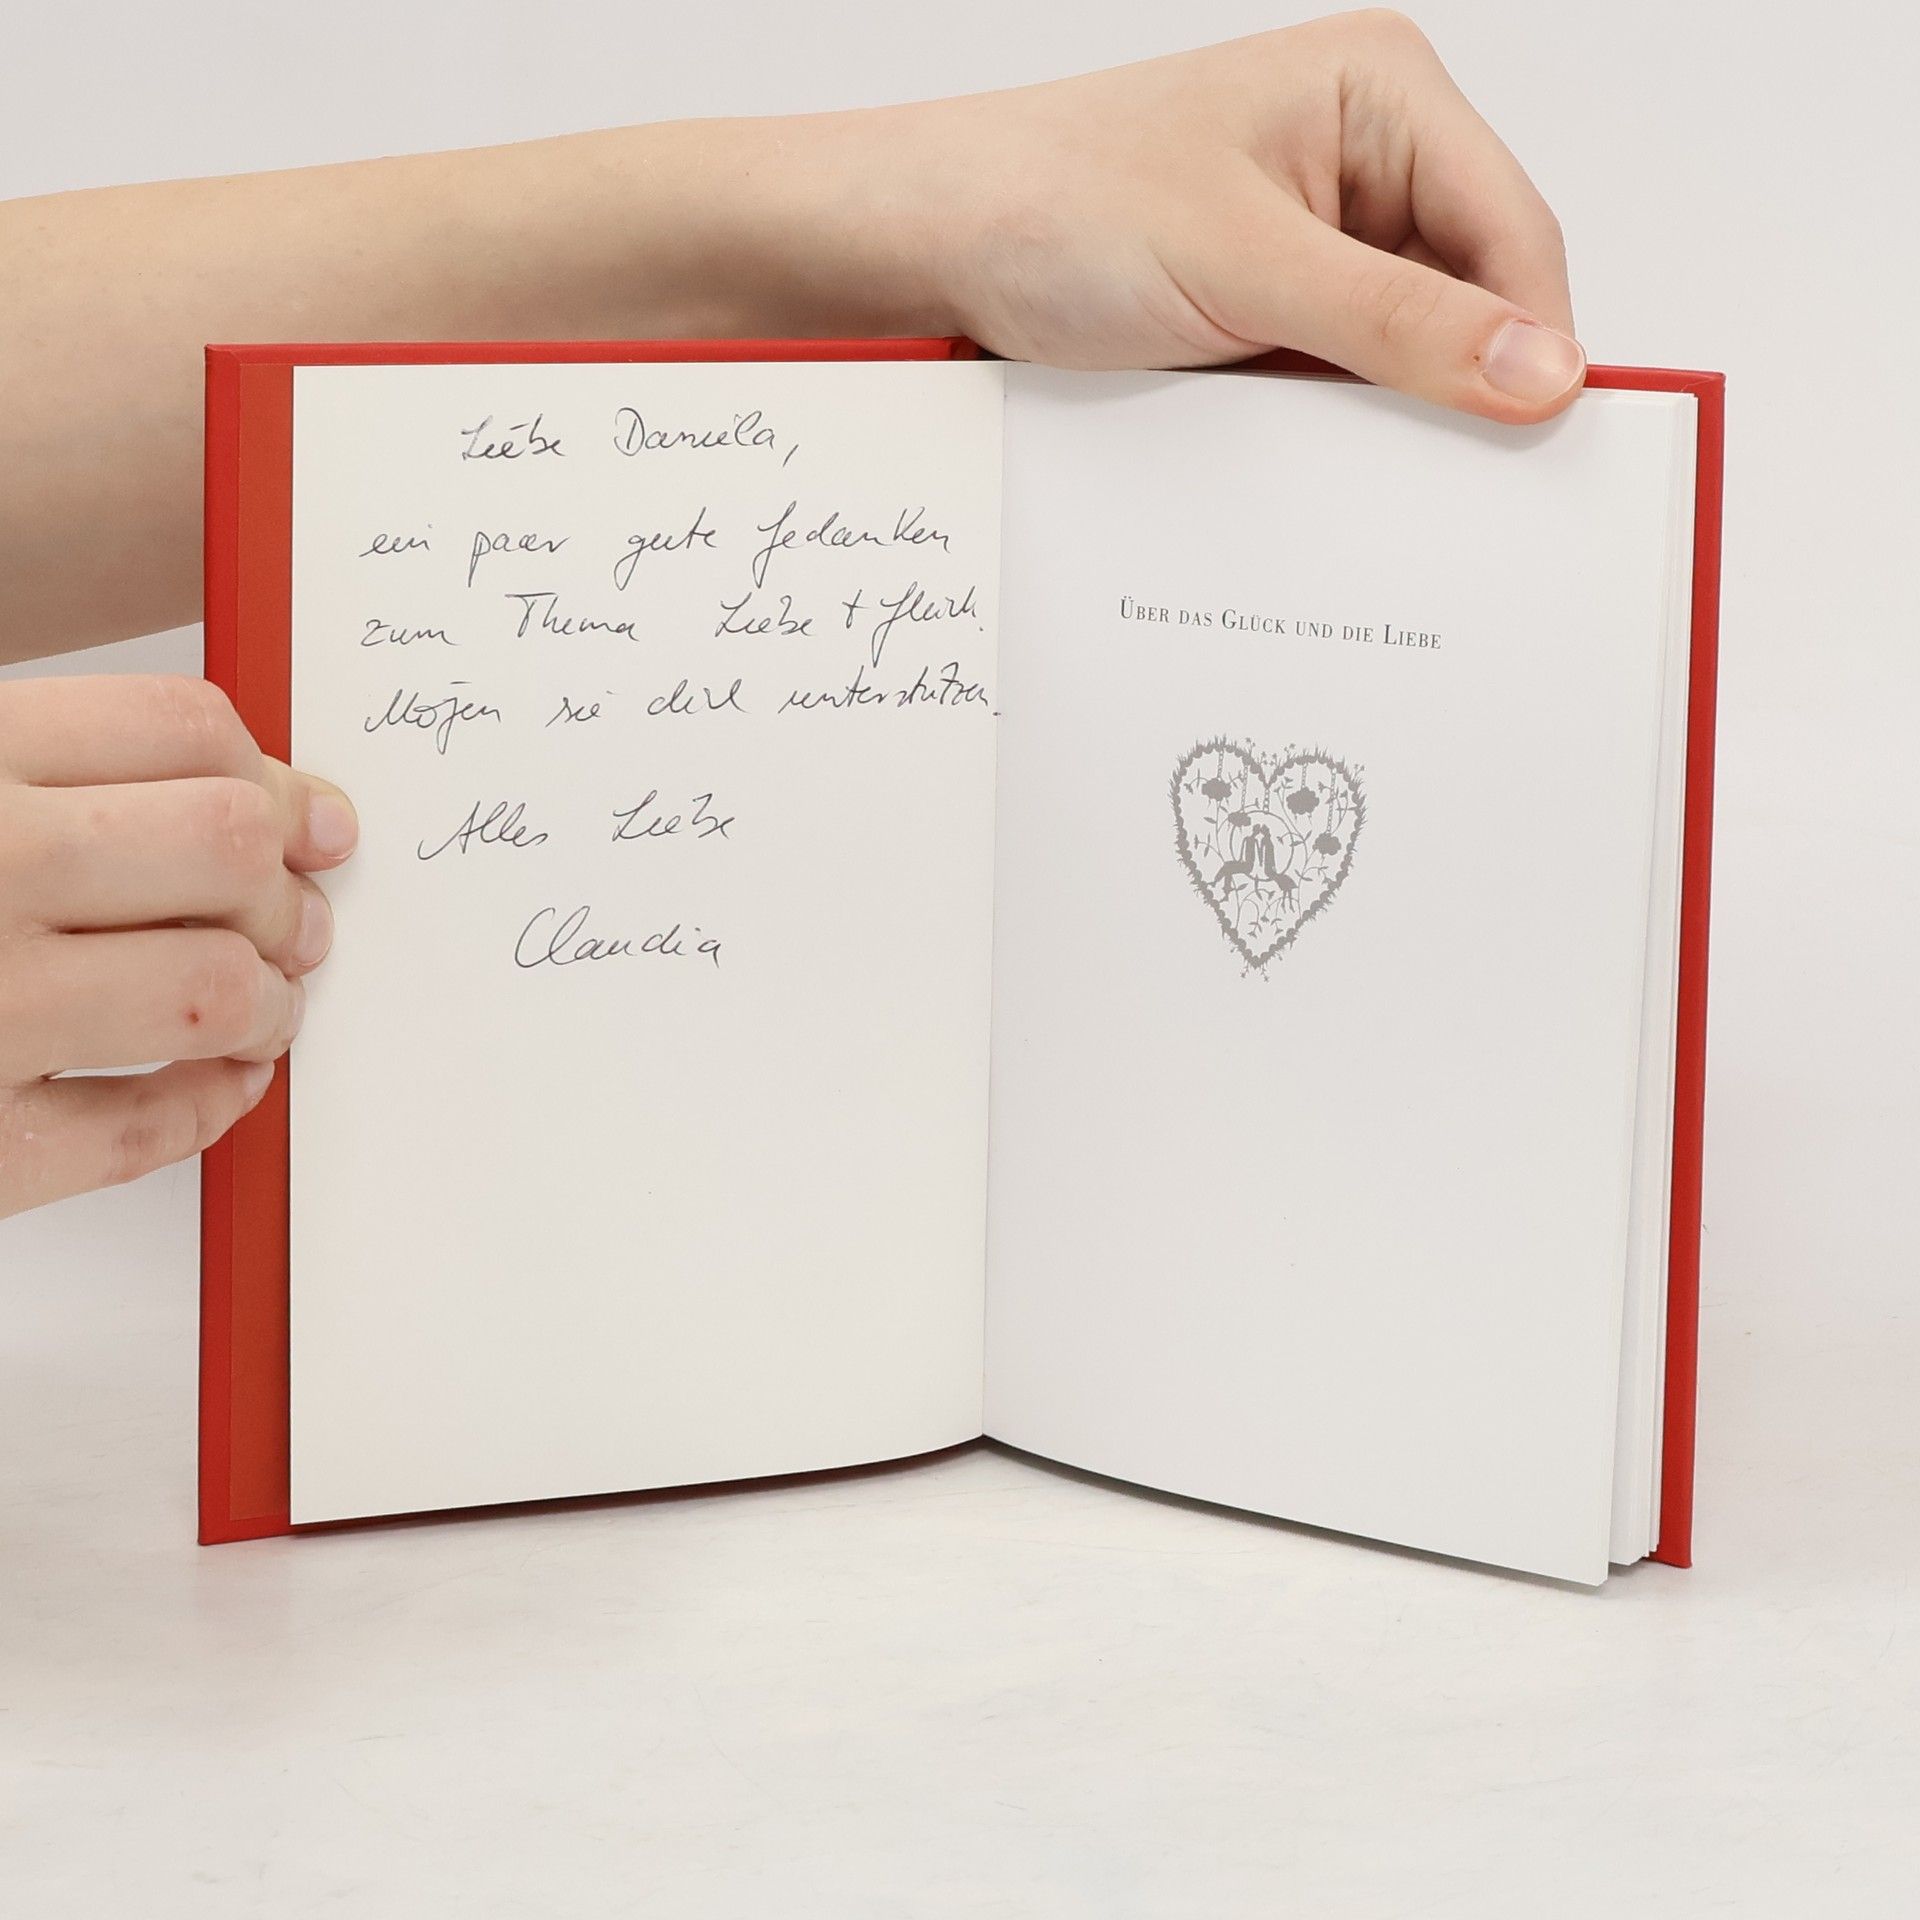 Liebe Daniela,
ein paar gute Gedanken
zum Thema Liebe + Glück.
Mögen sie dich unterstützen.
Alles Liebe
Claudia
ÜBER DAS GLÜCK UND DIE LIEBE